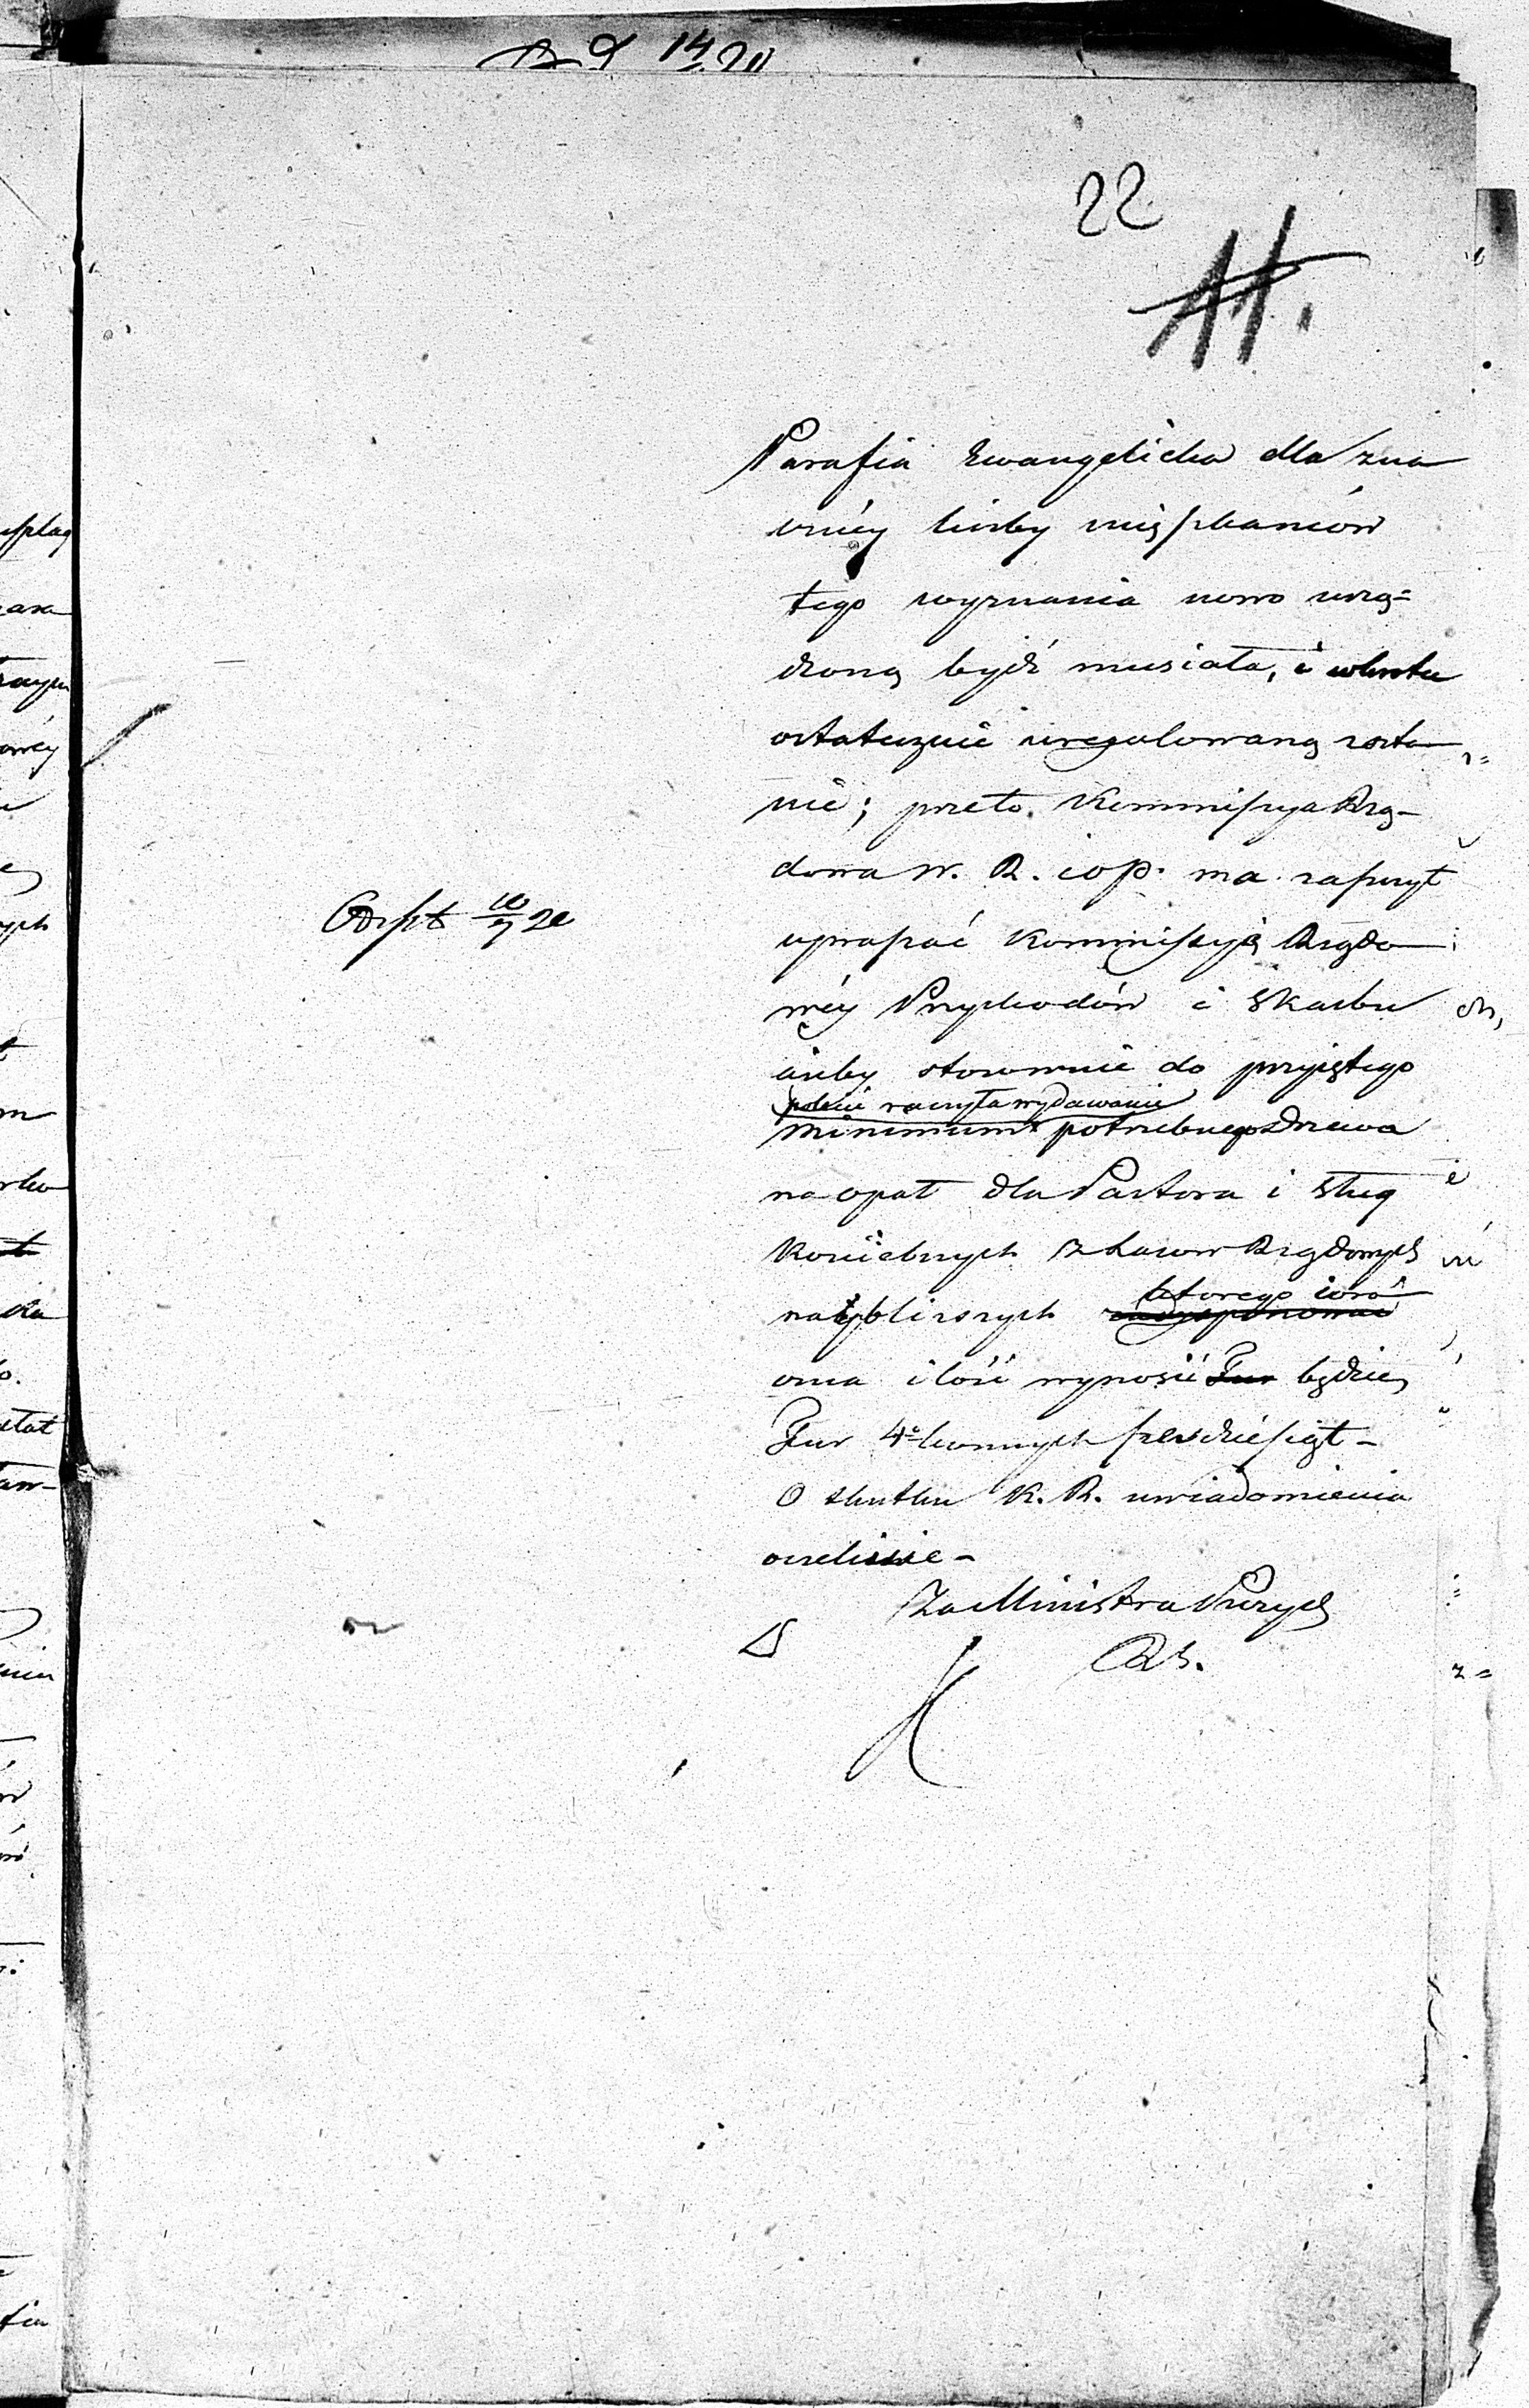 22
11.
Parafia Ewangelicka dla zna
cznéy liczby mięszkancow
tego wyznania nowo urzą=
dzoną bydź musiała, i wkrotce
ostatecznie uregulowaną zosta
nie; przeto Kommissya Rzą-
dowa W. R. i O. P. ma zaszczyt
upraszać Kommissyią Rządo
wéy Przychodów i Skarbu
ażeby stosownie do przyiętego
polecić raczyła wydawanie
minimum potrzebnego drzewa
na opał dla Pastora i sług
Kościelnych z Lasow Rządowych
naybliższych
którego
ona ilość wynosić Fur będzie
Fur 4o konnych sześćdziesiąt -
O skutku K. R. uwiadomienia
oczekiwie -
Za Ministra Prezyd
Exspt 10/7 20